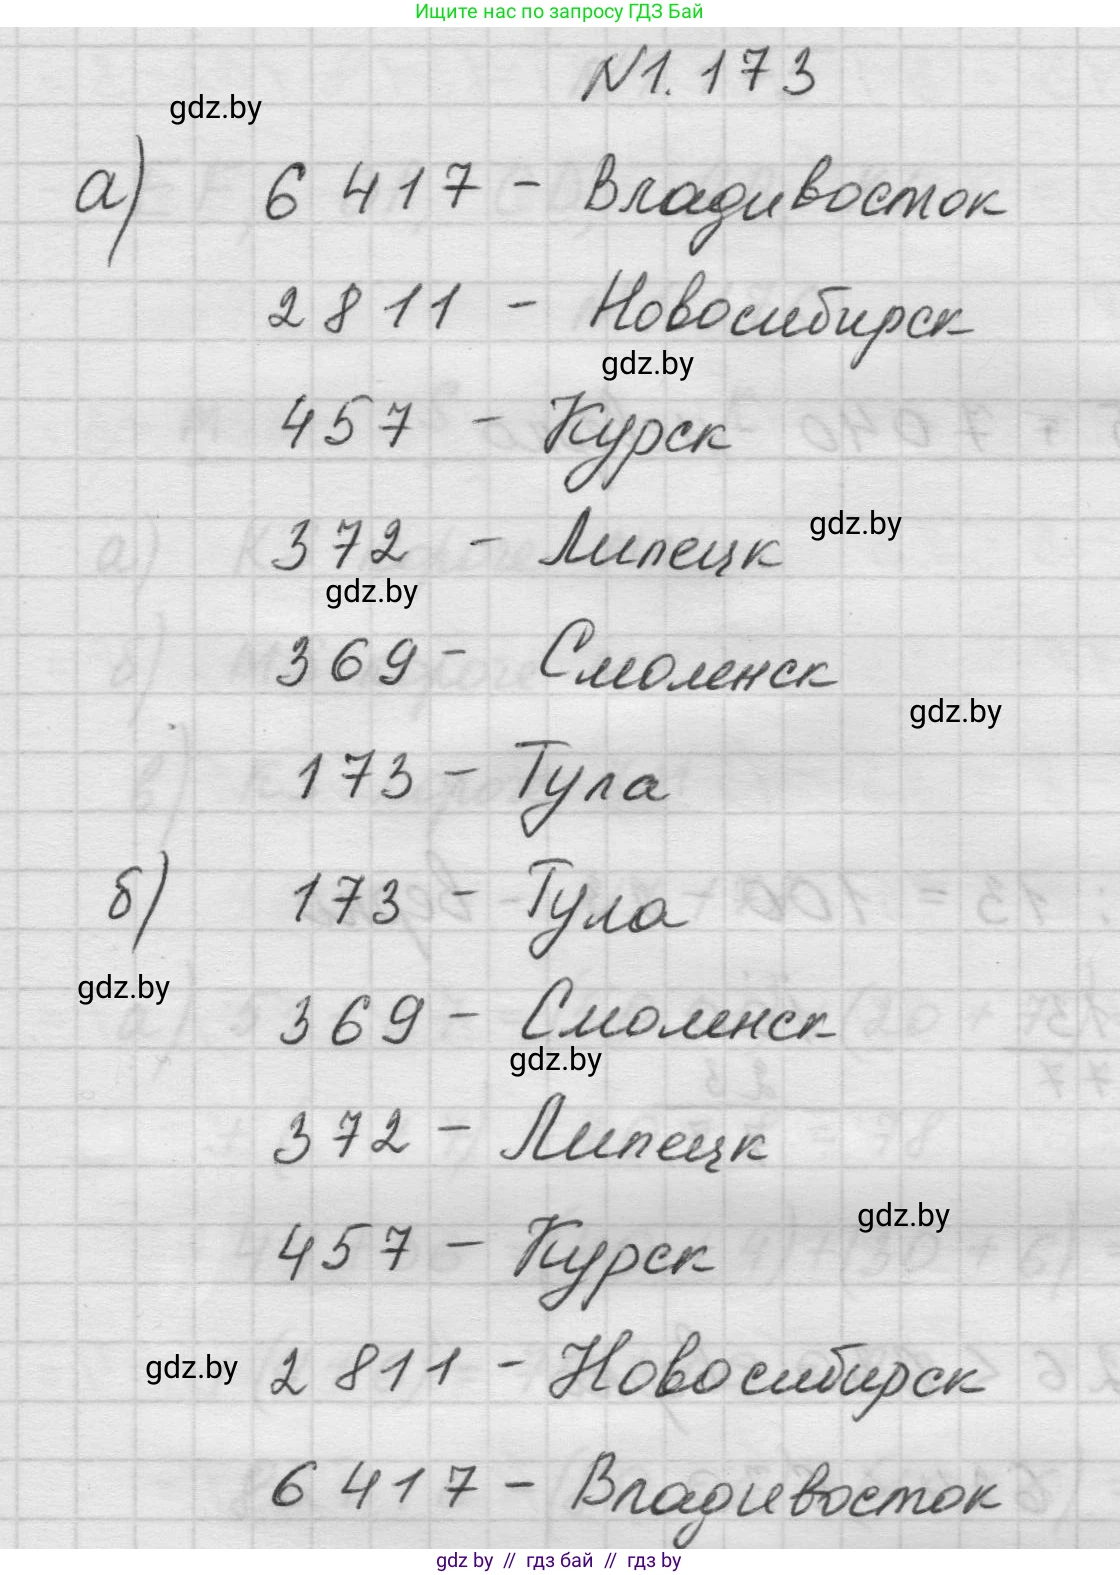 Ищите нас по запросу ГДЗ Бай
N1.173
gdz.by
а) 6 417 - Владивосток
2 811 - Новосибирск
gdz.by
457 - Курск
gdz.by
372 - Липецк
gdz.by
369 - Смоленск
gdz.by
173 - Тула
б) 173 - Тула
gdz.by
369 - Смоленск
gdz.by
372 - Липецк
gdz.by
457 - Курск
gdz.by
2 811 - Новосибирск
6 417 - Владивосток
gdz.by // гдз бай // гдз by